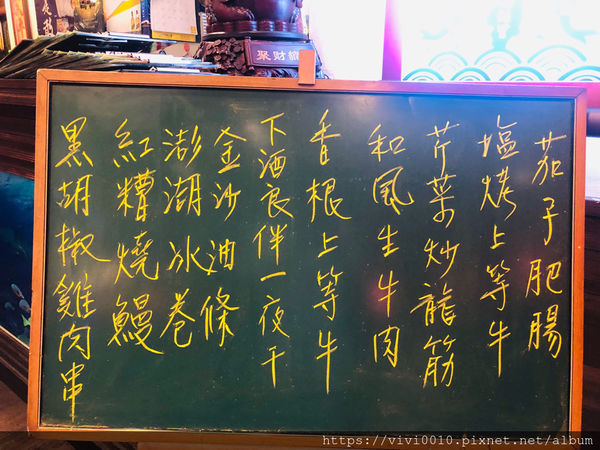 聚財
茄子肥腸
塩烤上等牛
芹菜炒龍筋
和風生牛肉
香根上等牛
下酒良伴一夜干
金沙油條
澎湖冰卷
紅糟燒鰻
黑胡椒雞肉串
https://vivi0010.pixnet.net/album